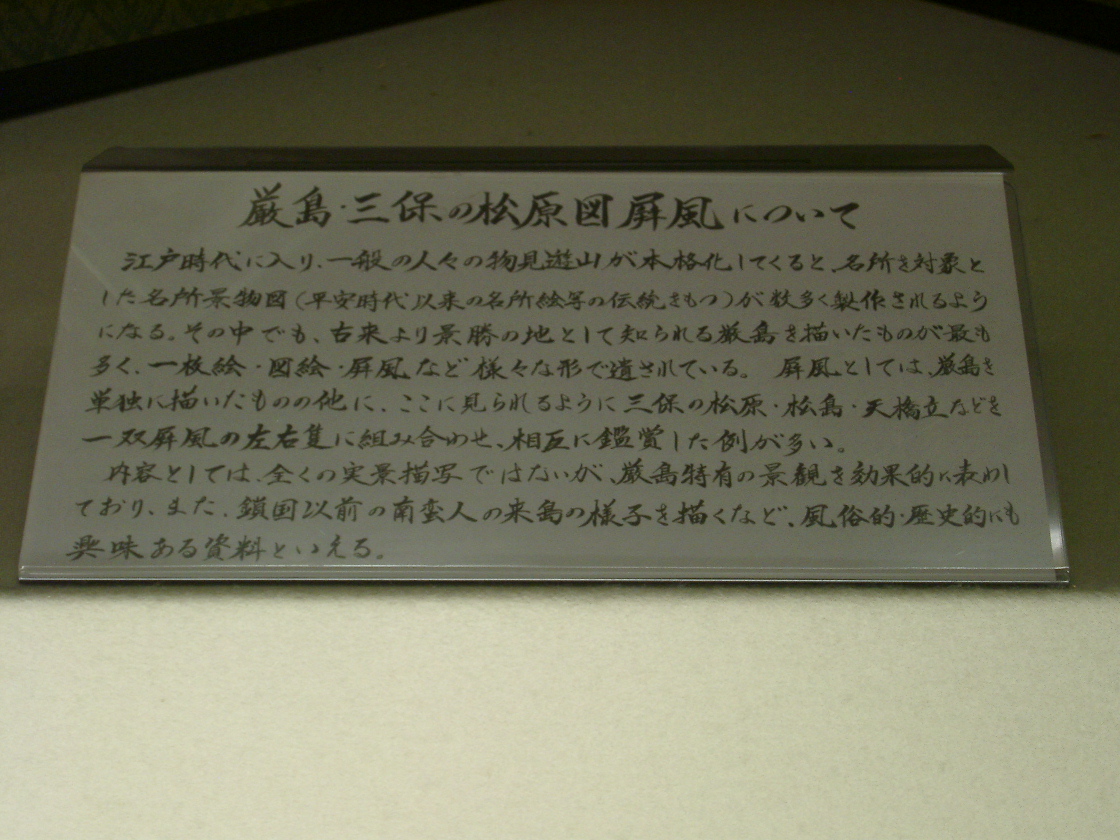 厳島・三保の松原図屛風について
江戸時代に入り、一般の人々の物見遊山が本格化してくると、名所を対象と
した名所景物図(平安時代以来の名所絵等の伝統をもつ)が数多く製作されるよう
になる。その中でも、古来より景勝の地として知られる厳島を描いたものが最も
多く、一枚絵・図絵・屛風など様々な形で遺されている。 屛風としては、厳島を
単独に描いたものの他に、ここに見られるように三保の松原・松島・天橋立などを
一双屛風の左右隻に組み合わせ、相互に鑑賞した例が多い。
内容としては、全くの実景描写ではないが、厳島特有の景観を効果的に表わし
ており、また、鎖国以前の南蛮人の来島の様子を描くなど、風俗的・歴史的にも
興味ある資料といえる。